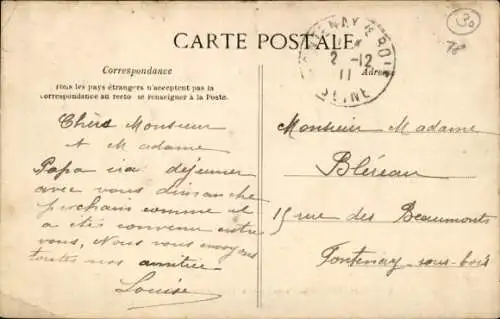 CARTE POSTALE
Correspondance
Tous les pays étrangers n'acceptent pas la
correspondance au recto se renseigner à la Poste.
Adresse
FONTENAY S BOIS
2 -12
11
SEINE
30
Chèrs Monsieur
et Madame
Papa ira déjeuner
avec vous dimanche
prochain comme il
a étés convenu entre
vous, Nous vous envoyons
toutes nos amitiée
Louise
Monsieur Madame
Bléreau
15 rue des Beaumonts
Fontenay sous-bois